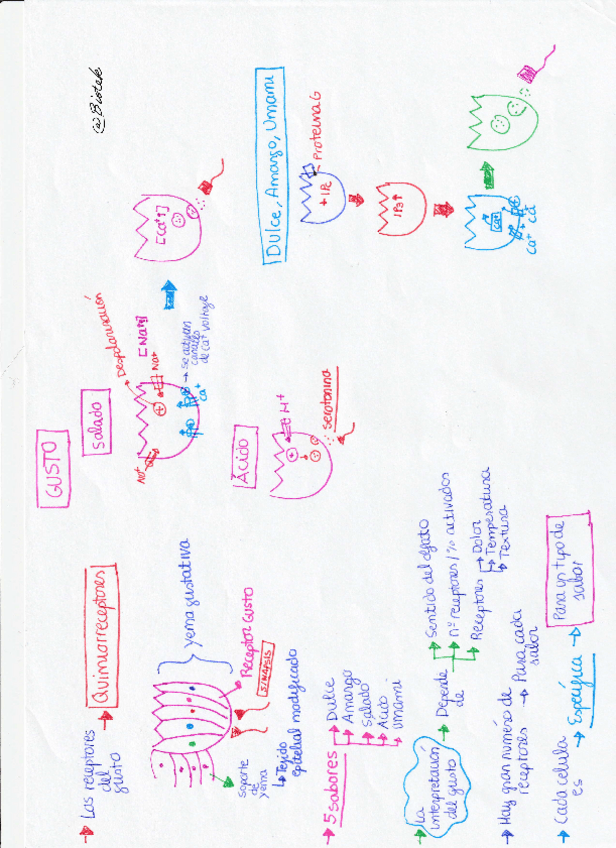 GUSTO
→ Los receptores → Quimiorreceptores
del
gusto
yema gustativa
Receptor Gusto
SINAPSIS
soporte
de
yema
↳ Tejido
epitelial modificado
→ 5 sabores → Dulce
→ Amargo
→ Salado
→ Acido
→ Umami
→ La
interpretación
del gusto
→ Depende
de
→ Sentido del olfato
→ nº receptores / % activados
→ Receptores → Dolor
→ Temperatura
→ Textura
→ Hay gran numéro de
receptores → Para cada
sabor
→ Cada celula
es → Específica → Para un tipo de
sabor
Salado
Despolarización
Na+
+
Na+
[Na+↑]
→ Se activan
canales
de Ca+ voltaje
Ca+
[Ca+↑]
Ácido
H+
+
serotonina
Dulce, Amargo, Umami
Proteina G
IP3↑
Ca+
Ca
@Biotek